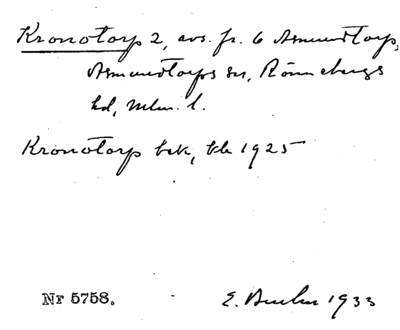 Kronotorp 2, avs. fr. 6 Asmundtorp,
Asmundtorps sn, Rönnebergs
hd, Mlm. l.
Kronotorp bek, tle 1925
Nr 5758.
E. 1933